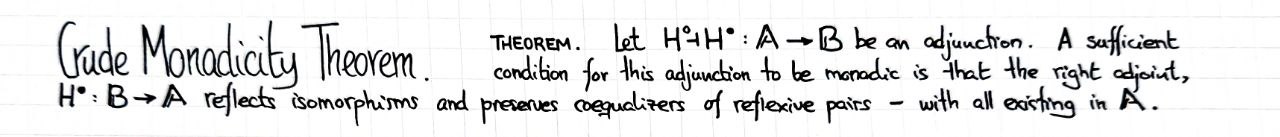 Crude Monadicity Theorem.
THEOREM. Let H°⊣H• : 𝔸 → 𝔹 be an adjunction. A sufficient
condition for this adjunction to be monadic is that the right adjoint,
H• : 𝔹 → 𝔸 reflects isomorphisms and preserves coequalizers of reflexive pairs – with all existing in 𝔸.